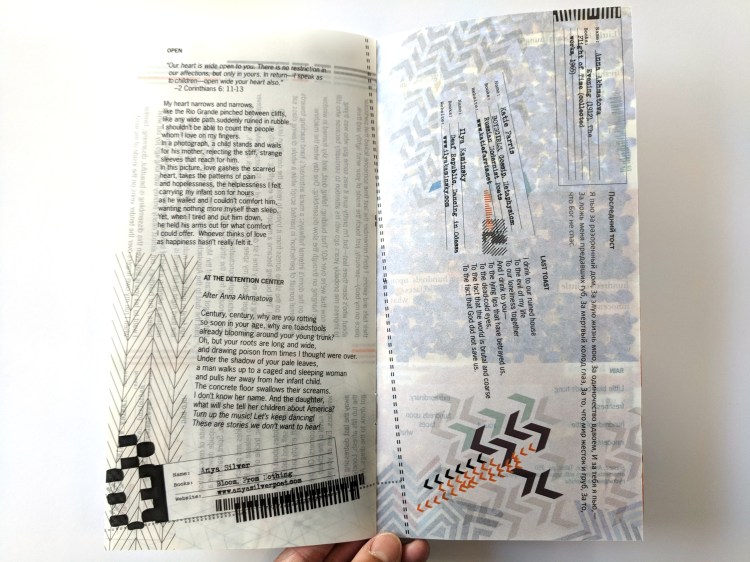 OPEN
"Our heart is wide open to you. There is no restriction in
our affections, but only in yours. In return—I speak as
to children—open wide your heart also."
–2 Corinthians 6: 11-13
My heart narrows and narrows,
like the Rio Grande pinched between cliffs,
like any wide path suddenly ruined in rubble.
I shouldn't be able to count the people
whom I love on my fingers.
In a photograph, a child stands and waits
for his mother, rejecting the stiff, strange
sleeves that reach for him.
In this picture, love gashes the scarred
heart, takes the patterns of pain
and hopelessness, the helplessness I felt
carrying my infant son for hours
as he wailed and I couldn't comfort him,
wanting nothing more myself than sleep.
Yet, when I tired and put him down,
he held his arms out for what comfort
I could offer. Whoever thinks of love
as happiness hasn't really felt it.
AT THE DETENTION CENTER
After Anna Akhmatova
Century, century, why are you rotting
so soon in your age, why are toadstools
already blooming around your young trunk?
Oh, but your roots are long and wide,
and drawing poison from times I thought were over.
Under the shadow of your pale leaves,
a man walks up to a caged and sleeping woman
and pulls her away from her infant child.
The concrete floor swallows their screams.
I don't know her name. And the daughter,
what will she tell her children about America?
Turn up the music! Let's keep dancing!
These are stories we don't want to hear!
Name: Anya Silver
Books: Bloom, From Nothing
Website: www.anyasilverpoet.com
Name: Anna Akhmatova
Books: Evening (1912), The
Flight of Time (collected
works, 1965)
Name: Katie Farris
Books: BOYSGIRLS, Gossip, Metaphysics
Russian Modernist Poets
Website: www.katiefarris.net
Name: Ilya Kaminsky
Books: Deaf Republic, Dancing in Odessa
Website: www.ilyakaminsky.com
Последний тост
Я пью за разоренный дом, За злую жизнь мою, За одиночество вдвоем, И за тебя я пью, –
За ложь меня предавших губ, За мертвый холод глаз, За то, что мир жесток и груб, За то,
что Бог не спас.
LAST TOAST
I drink to our ruined house
To the evil of my life
To our loneliness together
And I drink to you—
To the lying lips that have betrayed us,
To the dead-cold eyes,
To the fact that the world is brutal and coarse
To the fact that God did not save us.